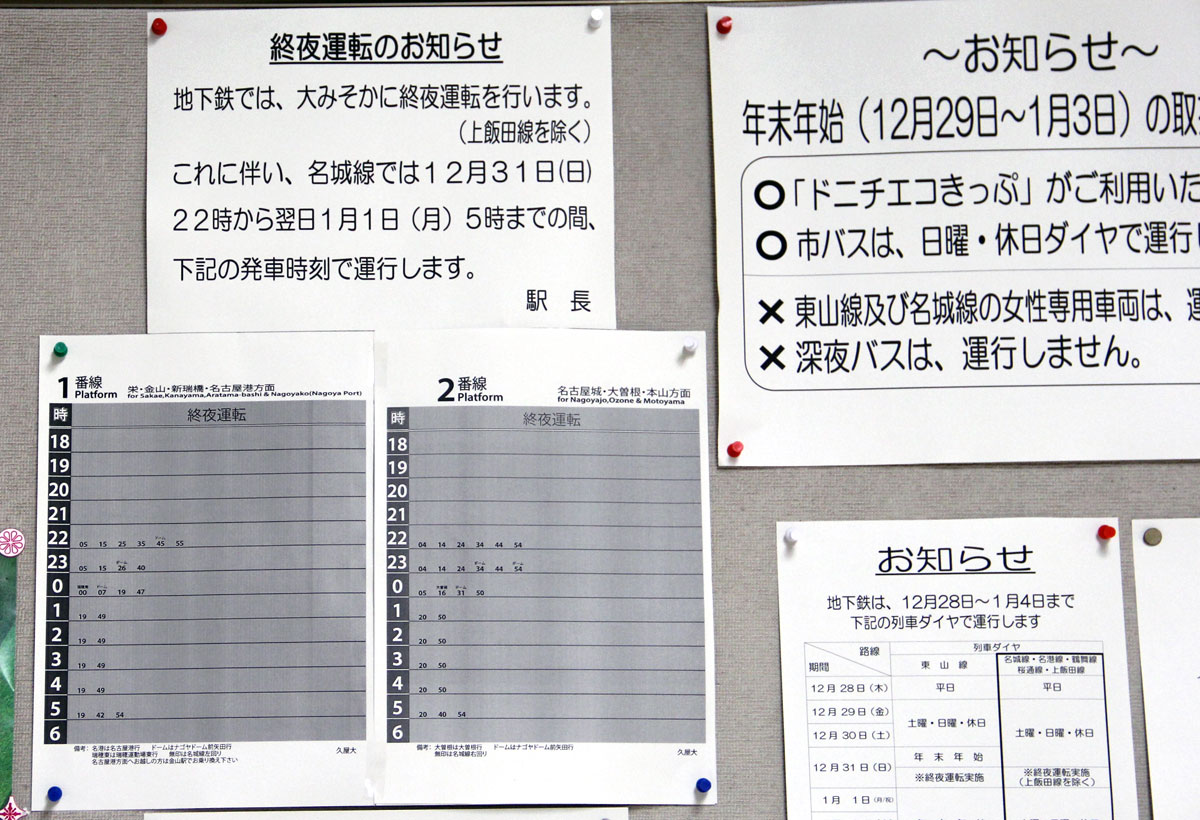 終夜運転のお知らせ
地下鉄では、大みそかに終夜運転を行います。
（上飯田線を除く）
これに伴い、名城線では１２月３１日(日)
２２時から翌日１月１日（月）５時までの間、
下記の発車時刻で運行します。
駅　長
～お知らせ～
年末年始（12月29日～1月3日）の取
○「ドニチエコきっぷ」がご利用いた
○ 市バスは、日曜・休日ダイヤで運行し
× 東山線及び名城線の女性専用車両は、運
× 深夜バスは、運行しません。
1 番線 Platform
栄・金山・新瑞橋・名古屋港方面
for Sakae,Kanayama,Aratama-bashi & Nagoyako(Nagoya Port)
時 終夜運転
18
19
20
21
22 05 15 25 35 ドーム45 55
23 05 15 ドーム26 40
0 00 ドーム07 19 47
1 19 49
2 19 49
3 19 49
4 19 49
5 19 42 54
6
備考: 名港は名古屋港行　ドームはナゴヤドーム前矢田行
瑞穂東は瑞穂運動場東行　無印は名城線左回り
名古屋港方面へお越しの方は金山駅でお乗り換え下さい
久屋大
2 番線 Platform
名古屋城・大曽根・本山方面
for Nagoyajo,Ozone & Motoyama
時 終夜運転
18
19
20
21
22 04 14 24 34 44 54
23 04 14 24 ドーム34 44 ドーム54
0 05 大曽根16 ドーム31 50
1 20 50
2 20 50
3 20 50
4 20 50
5 20 40 54
6
備考: 大曽根は大曽根行　ドームはナゴヤドーム前矢田行
無印は名城線右回り
久屋大
お知らせ
地下鉄は、12月28日～１月４日まで
下記の列車ダイヤで運行します
路線
期間
列車ダイヤ
東 山 線
名城線・名港線・鶴舞線
桜通線・上飯田線
12月28日（木） 平日 平日
12月29日（金）
土曜・日曜・休日
12月30日（土）
土曜・日曜・休日
12月31日（日）
年 末 年 始
※終夜運転実施
※終夜運転実施
（上飯田線を除く）
1月 1日（月/祝）